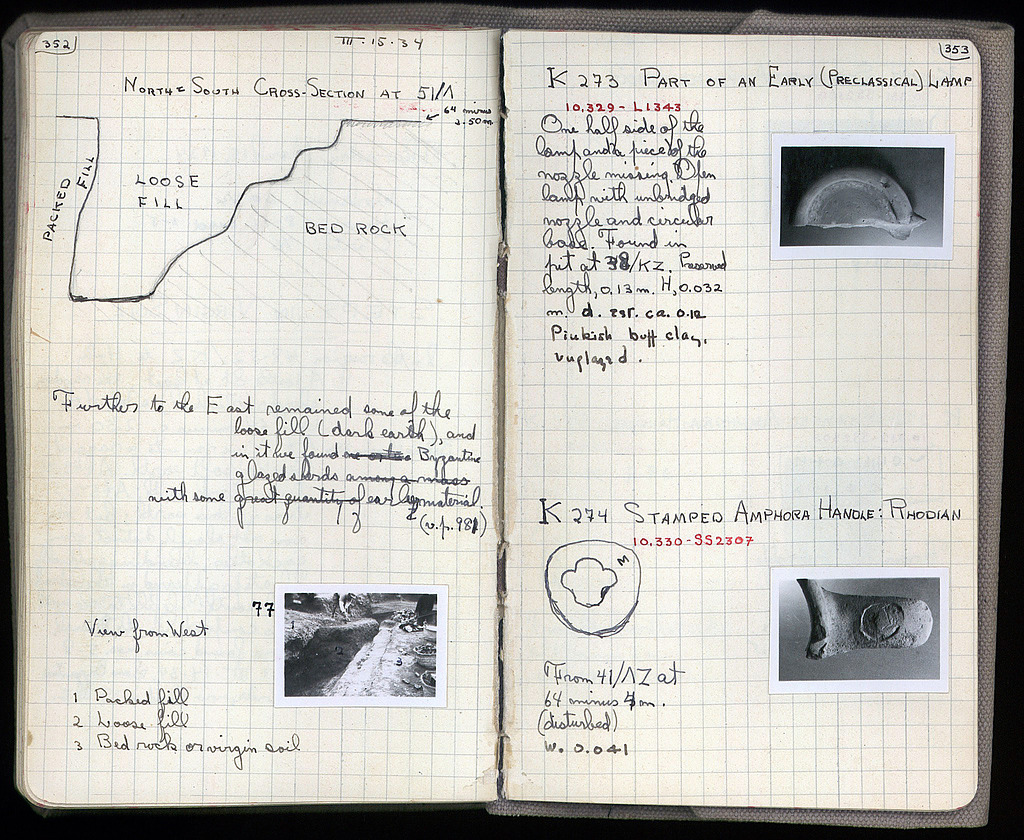 352
III·15·34
North-South Cross-Section at 51/Λ
64 minus
2.50m
PACKED FILL
LOOSE
FILL
BED ROCK
Further to the East remained some of the
loose fill (dark earth), and
in it we found Byzantine
glazed sherds among a mass
with some great quantity of earlier material.
(v.p. 981)
77
View from West
1 Packed fill
2 Loose fill
3 Bed rock or virgin soil
1
2
3
353
K 273 Part of an Early (Preclassical) Lamp
10.329 - L1343
One half side of the
lamp and a piece of the
nozzle missing. Open
lamp with unbridged
nozzle and circular
base. Found in
pit at 38/ΚΖ. Preserved
length, 0.13 m. H, 0.032
m. d. est. ca. 0.12
Pinkish buff clay,
unglazed.
K 274 Stamped Amphora Handle: Rhodian
10.330 - SS2307
M
From 41/ΛΖ at
64 minus 4m.
(disturbed)
W. 0.041